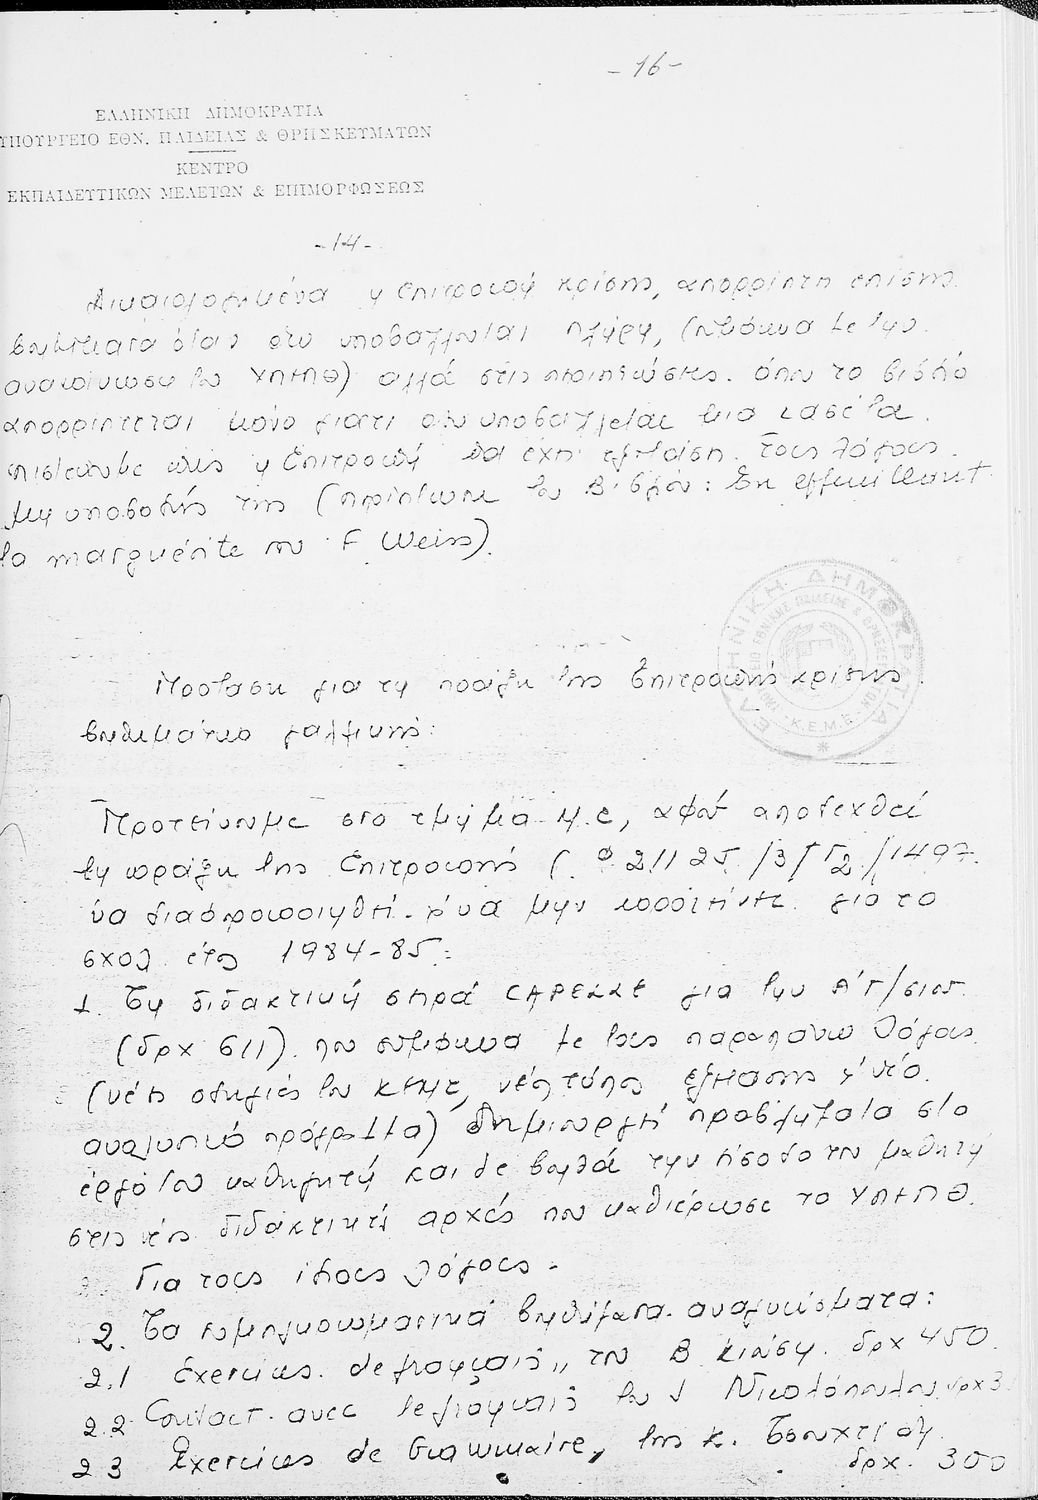 -16-
ΕΛΛΗΝΙΚΗ ΔΗΜΟΚΡΑΤΙΑ
ΥΠΟΥΡΓΕΙΟ ΕΘΝ. ΠΑΙΔΕΙΑΣ & ΘΡΗΣΚΕΥΜΑΤΩΝ
ΚΕΝΤΡΟ
ΕΚΠΑΙΔΕΥΤΙΚΩΝ ΜΕΛΕΤΩΝ & ΕΠΙΜΟΡΦΩΣΕΩΣ
-14-
Δικαιολογημένα η Επιτροπή κρίσης, απορρίπτει επίσης
βοηθήματα όταν δεν υποβάλλονται πλήρη, (σύμφωνα με την
ανακοίνωση του ΥΠΕΠΘ) αλλά στις περιπτώσεις όπου το βιβλίο
απορρίπτεται μόνο γιατί δεν υποβάλλεται μια κασέτα
πιστεύουμε πως η Επιτροπή θα έχει εξετάσει τους λόγους
μη υποβολής της (περίπτωση του βιβλίου: En effeuillant
la marguerite του F. Weiss).
Προτάσεις για τη πράξη της Επιτροπής κρίσης
βοηθημάτων γαλλικής:
Προτείνουμε στο τμήμα Μ.Ε, αφού αποδεχθεί
τη πράξη της Επιτροπής (Φ 211 25/3/Γ2/1497
να διαφοροποιηθεί να μην προτείνει για το
σχολ έτος 1984-85:
1. Τη διδακτική σειρά CAPELLE για την Α'Γ/σίου
(δρχ 611) που σύμφωνα με τους παραπάνω λόγους
(νέες οδηγίες του ΚΕΜΕ, νέος τύπος εξέτασης, νέο
αναλυτικό πρόγραμμα) δημιουργεί προβλήματα στο
έργο του καθηγητή και δε βοηθά την είσοδο του μαθητή
στις νέες διδακτικές αρχές που καθιέρωσε το ΥΠΕΠΘ.
Για τους ίδιους λόγους
2. Τα συμπληρωματικά βοηθήματα αναγνώσματα:
2.1 Exercices de français,, του Β δρχ 450
2.2 Contact avec le français του Νικολόπουλου, δρχ 3
2.3 Exercices de Grammaire, της κ.
δρχ. 300
ΕΛΛΗΝΙΚΗ ΔΗΜΟΚΡΑΤΙΑ
Κ.Ε.Μ.Ε.